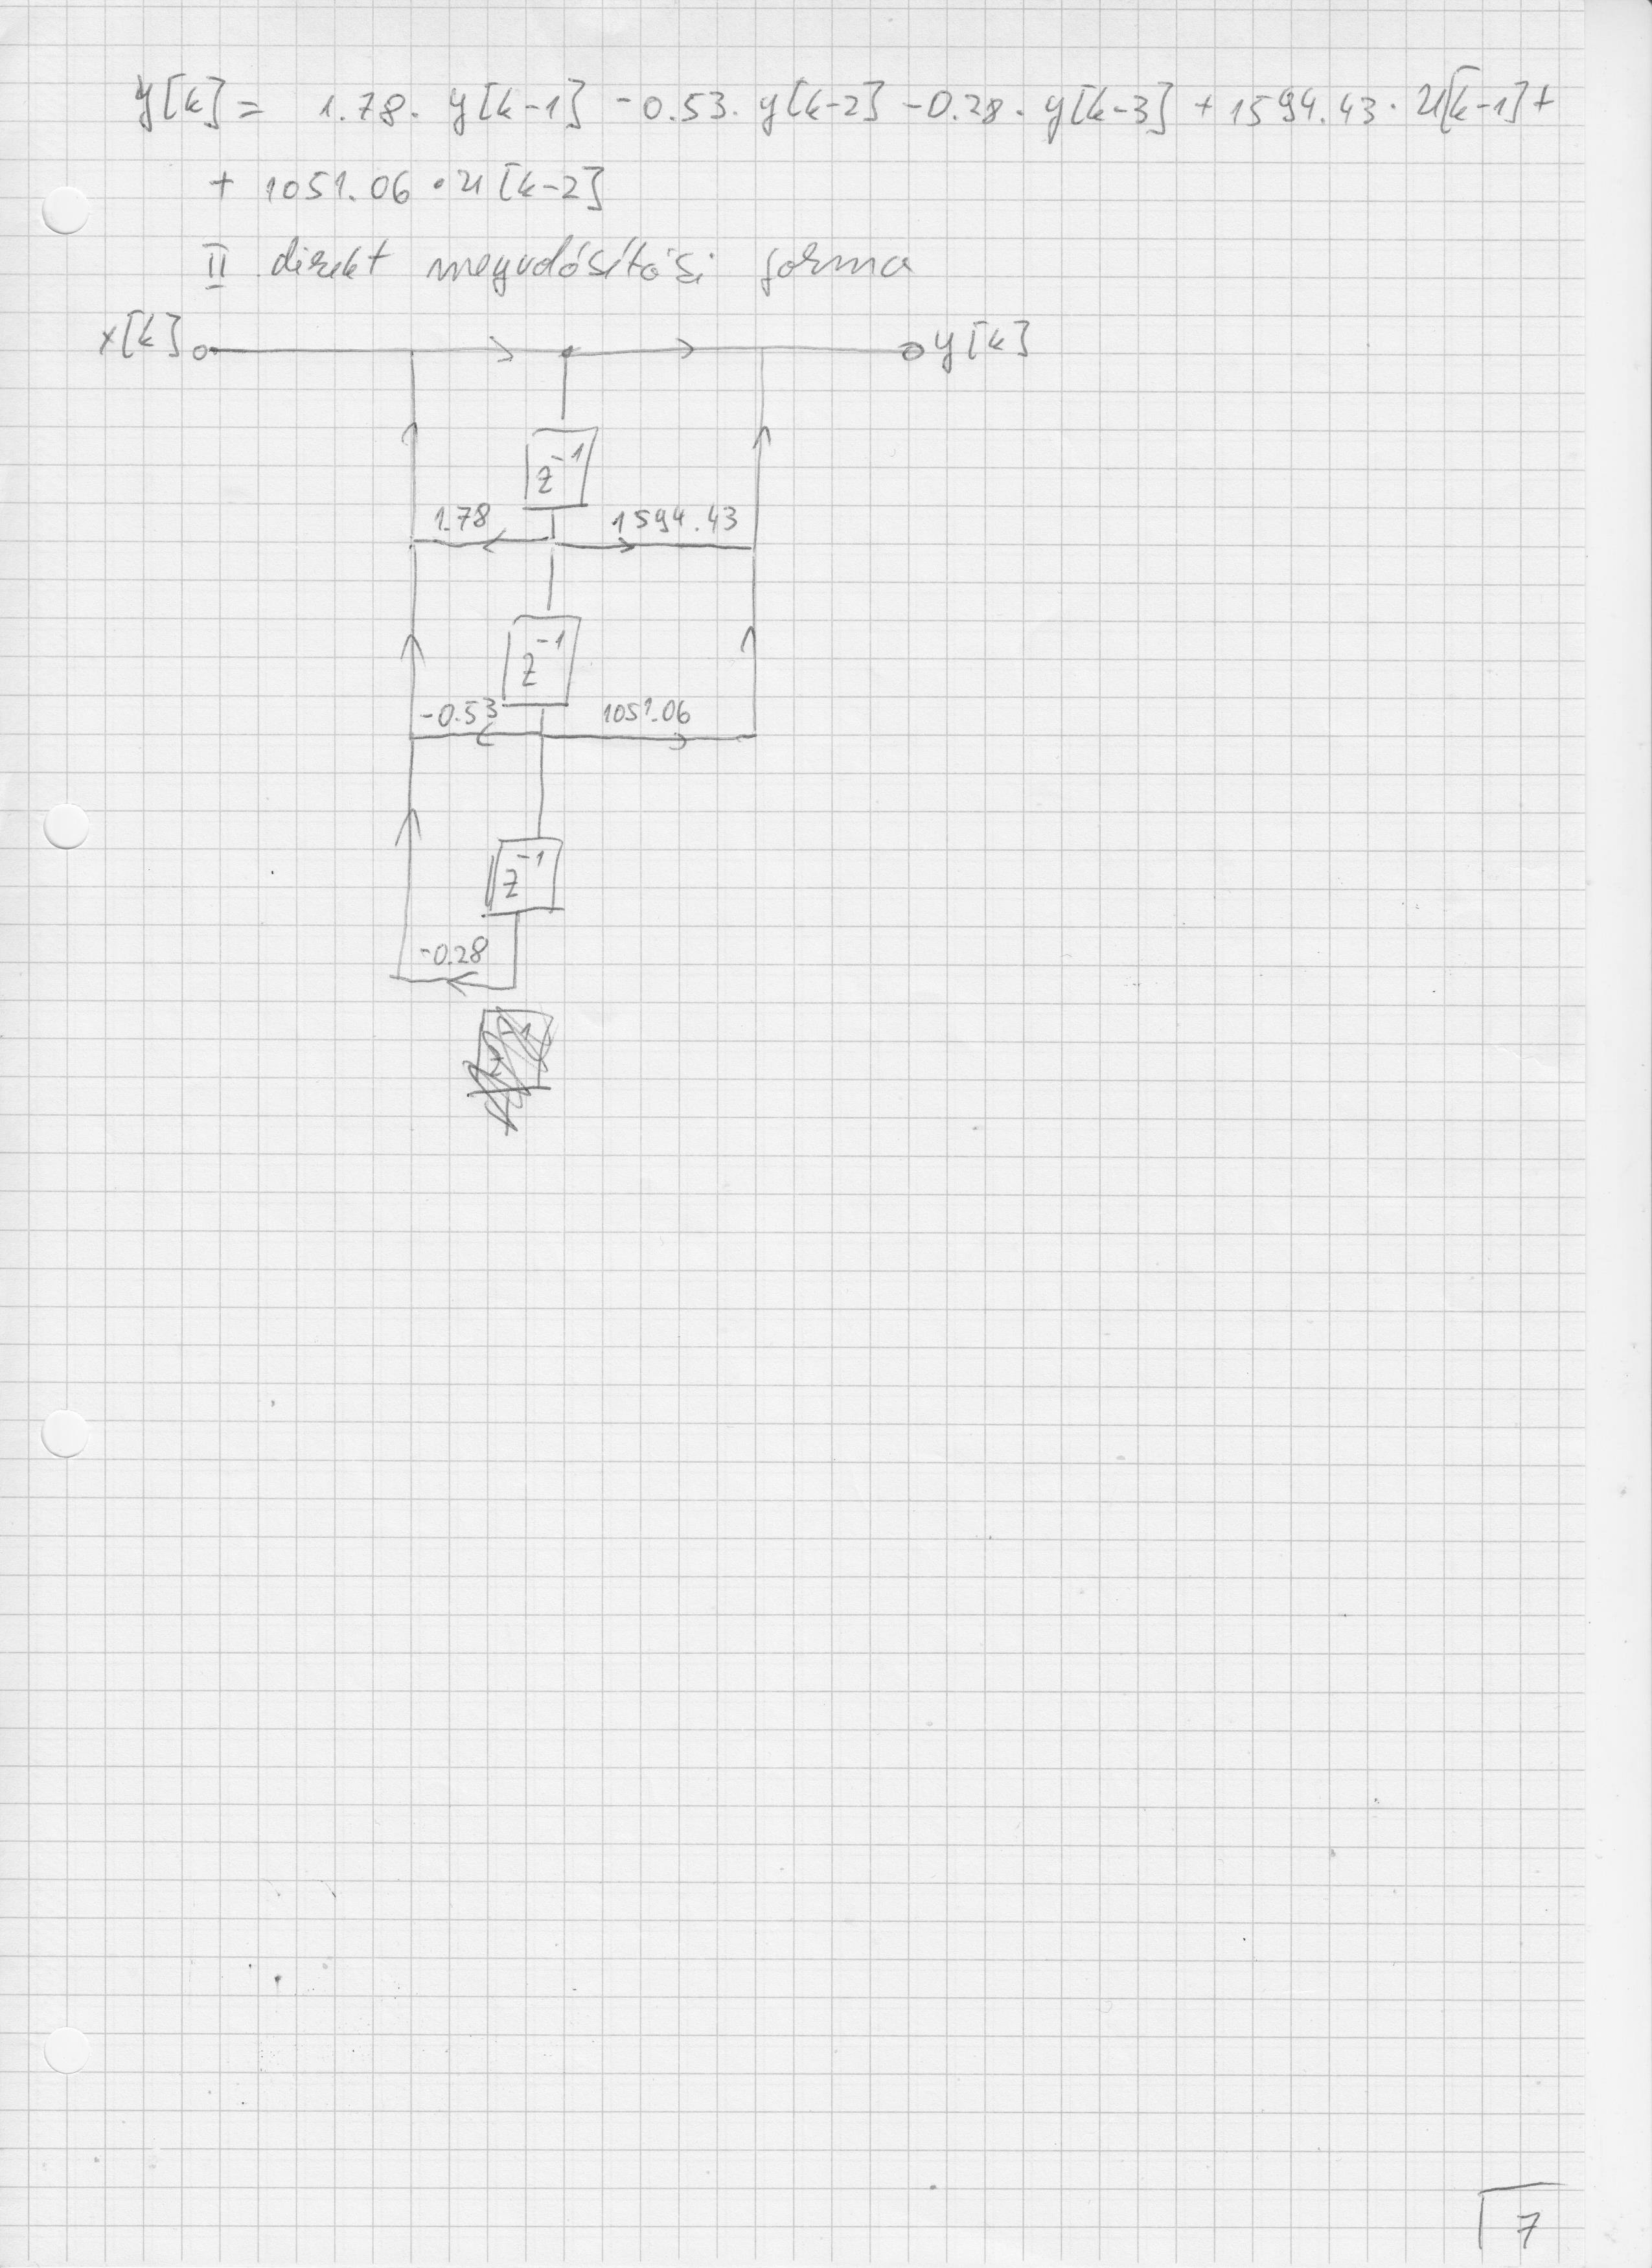 y[k] = 1.78 · y[k-1] -0.53 · y[k-2] -0.28 · y[k-3] + 1594.43 · u[k-1] +
+ 1051.06 · u[k-2]
II direkt megvalósítási forma
x[k] y[k]
z⁻¹
1.78 1594.43
z⁻¹
-0.53 1051.06
z⁻¹
-0.28
7